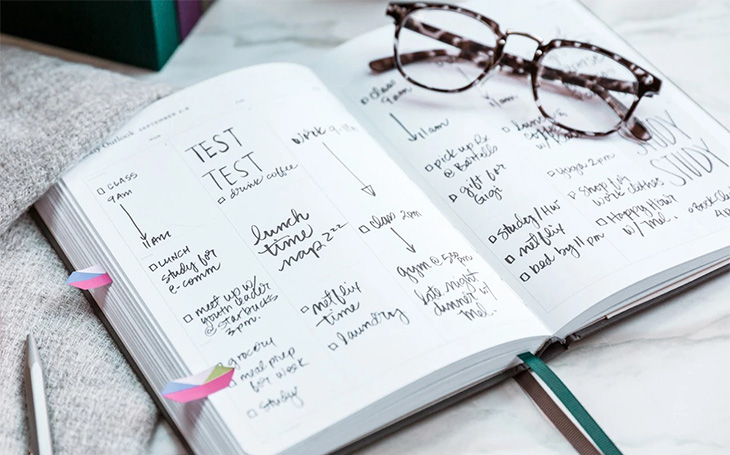 Outlook SEPTEMBER
CLASS
9AM
11AM
LUNCH
study for
e-comm
meet up w/
youth leader
@ Starbucks
3pm.
grocery
meal prep
for week
study
TEST
TEST
drink coffee
lunch
time
nap zzz
netflix
time
laundry
WORK
class 2pm
gym @ 5:30pm
late night
dinner w/
Mel.
class
9AM
11am
pick up Rx
@ Bartells
gift for
Gigi
study/HW
netflix
bed by 11pm
coffee
Yoga 2pm
shop for
work clothes
Happy Hour
w/ Mel.
STUDY
STUDY
book club